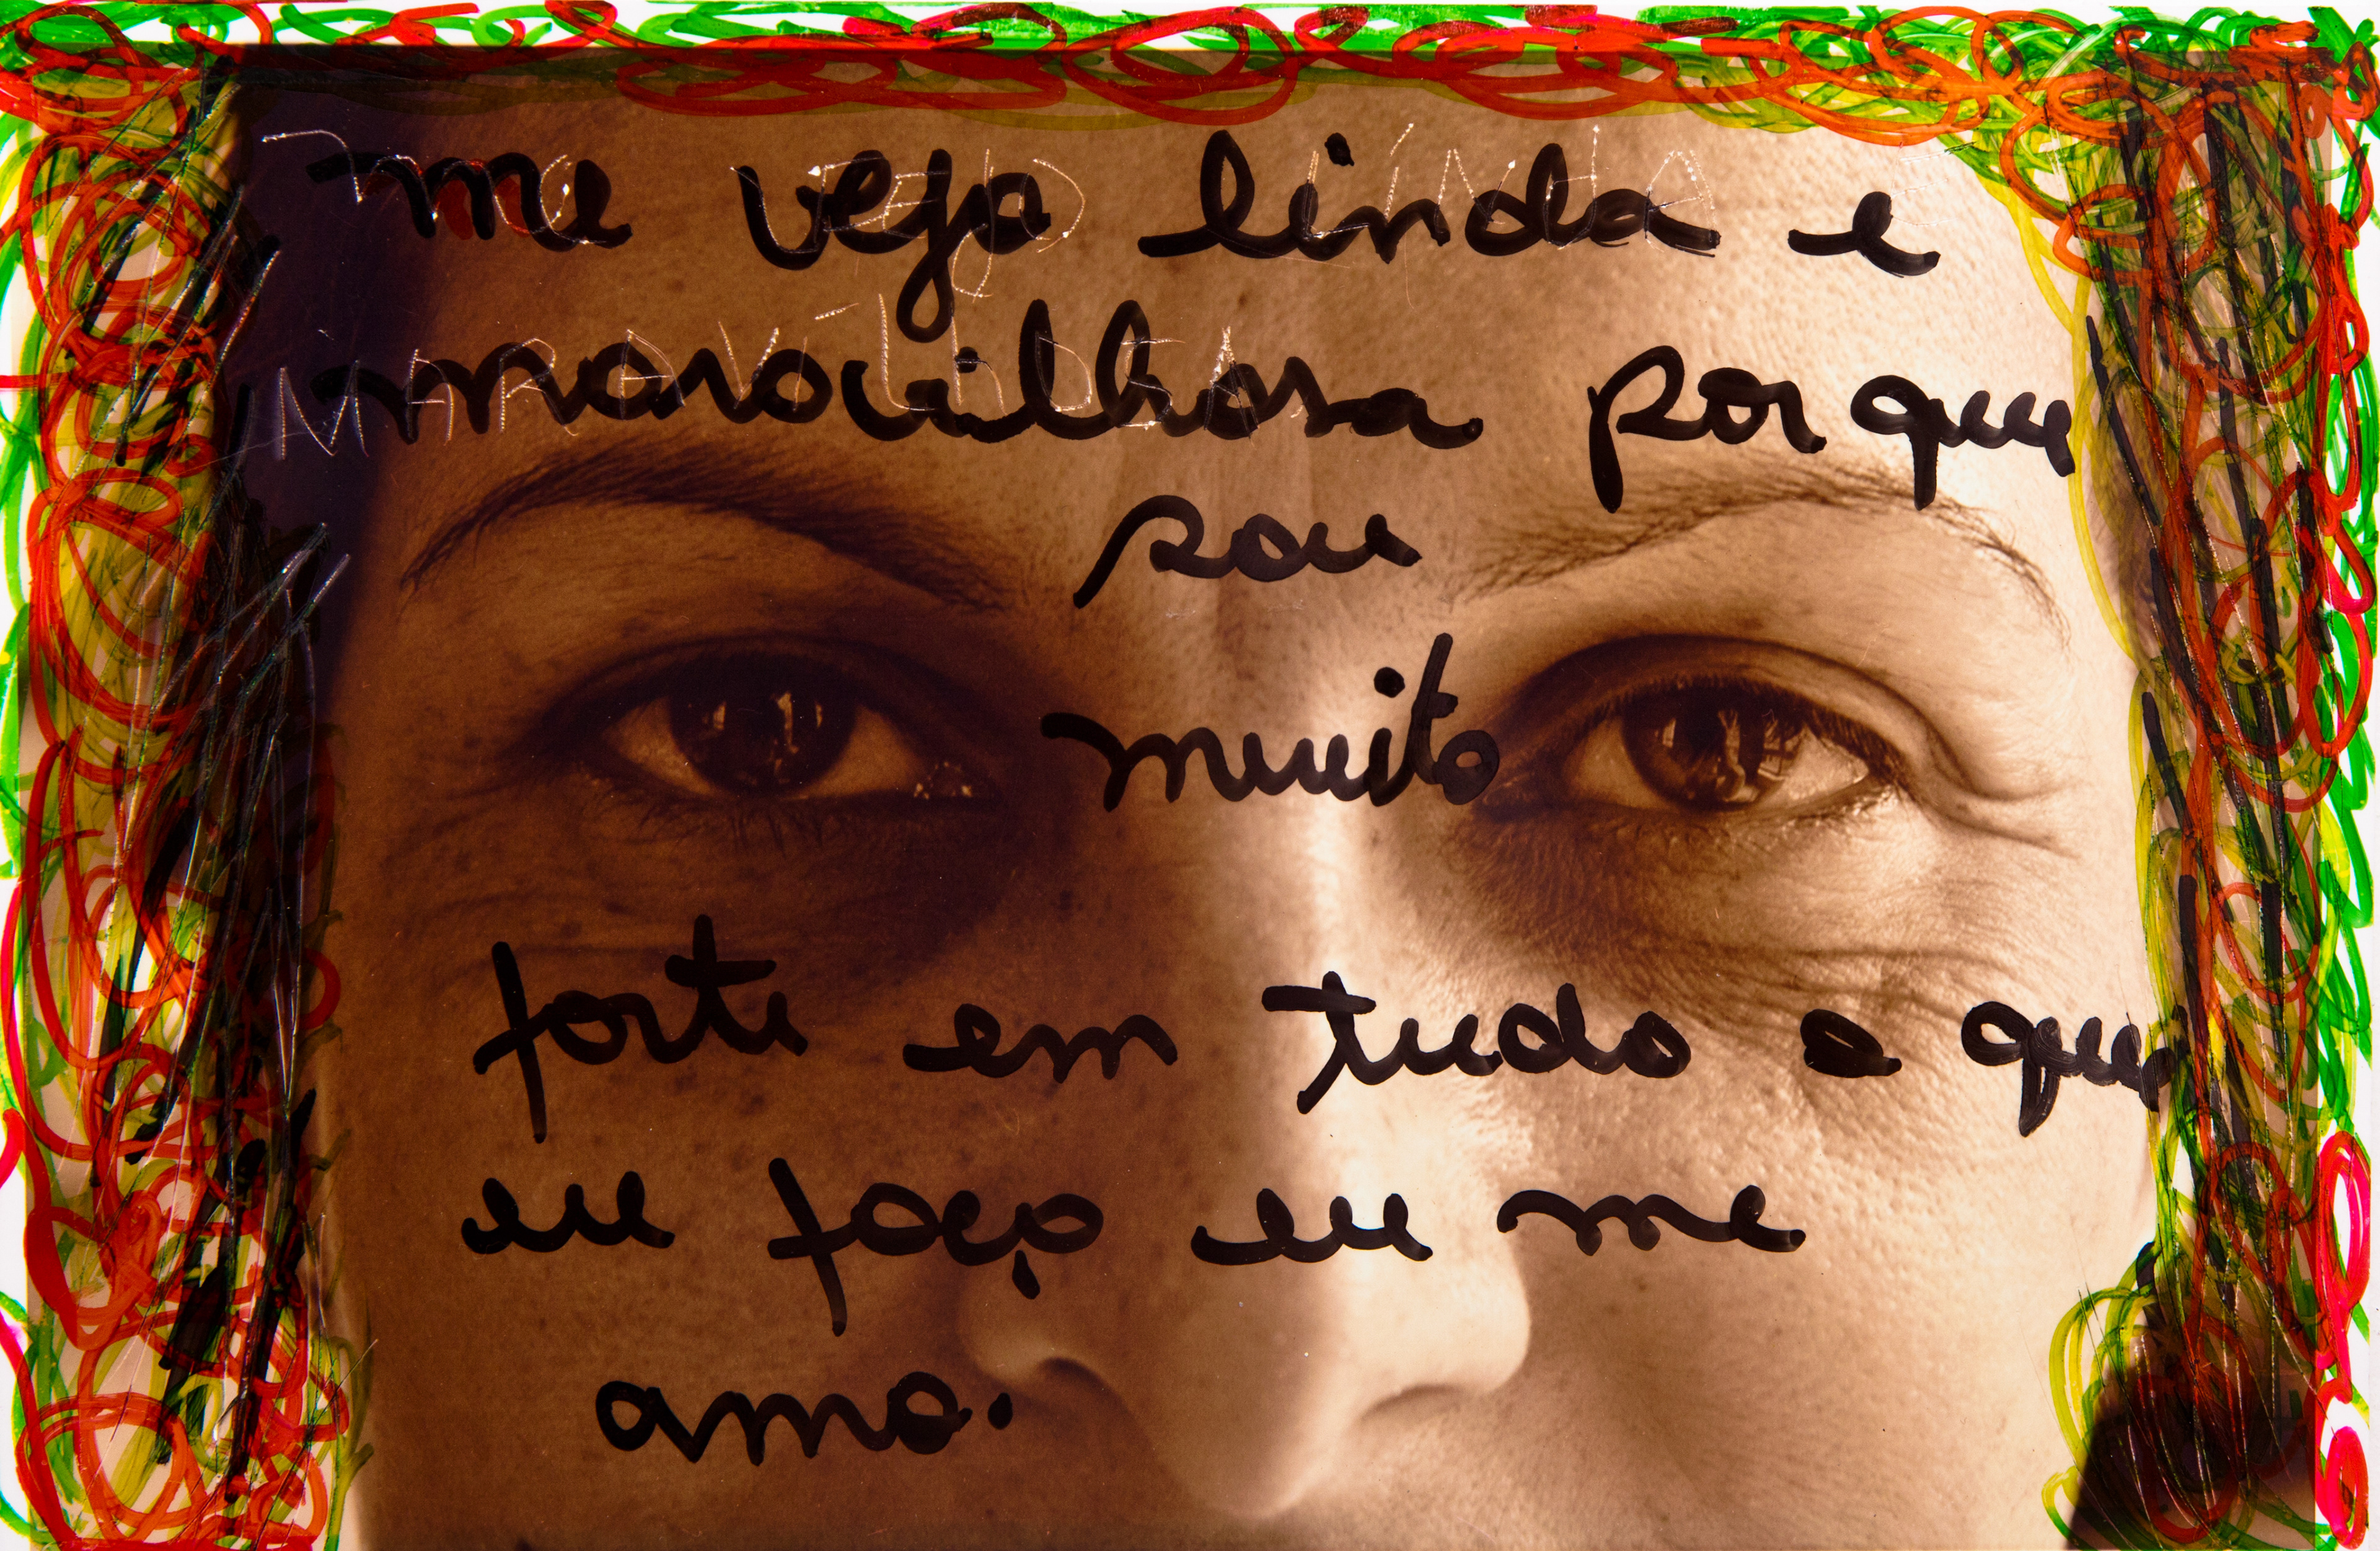 me vejo linda e
ME VEJO LINDA E
maravilhosa porque
MARAVILHOSA
sou
muito
forte em tudo o que
eu faço eu me
amo.